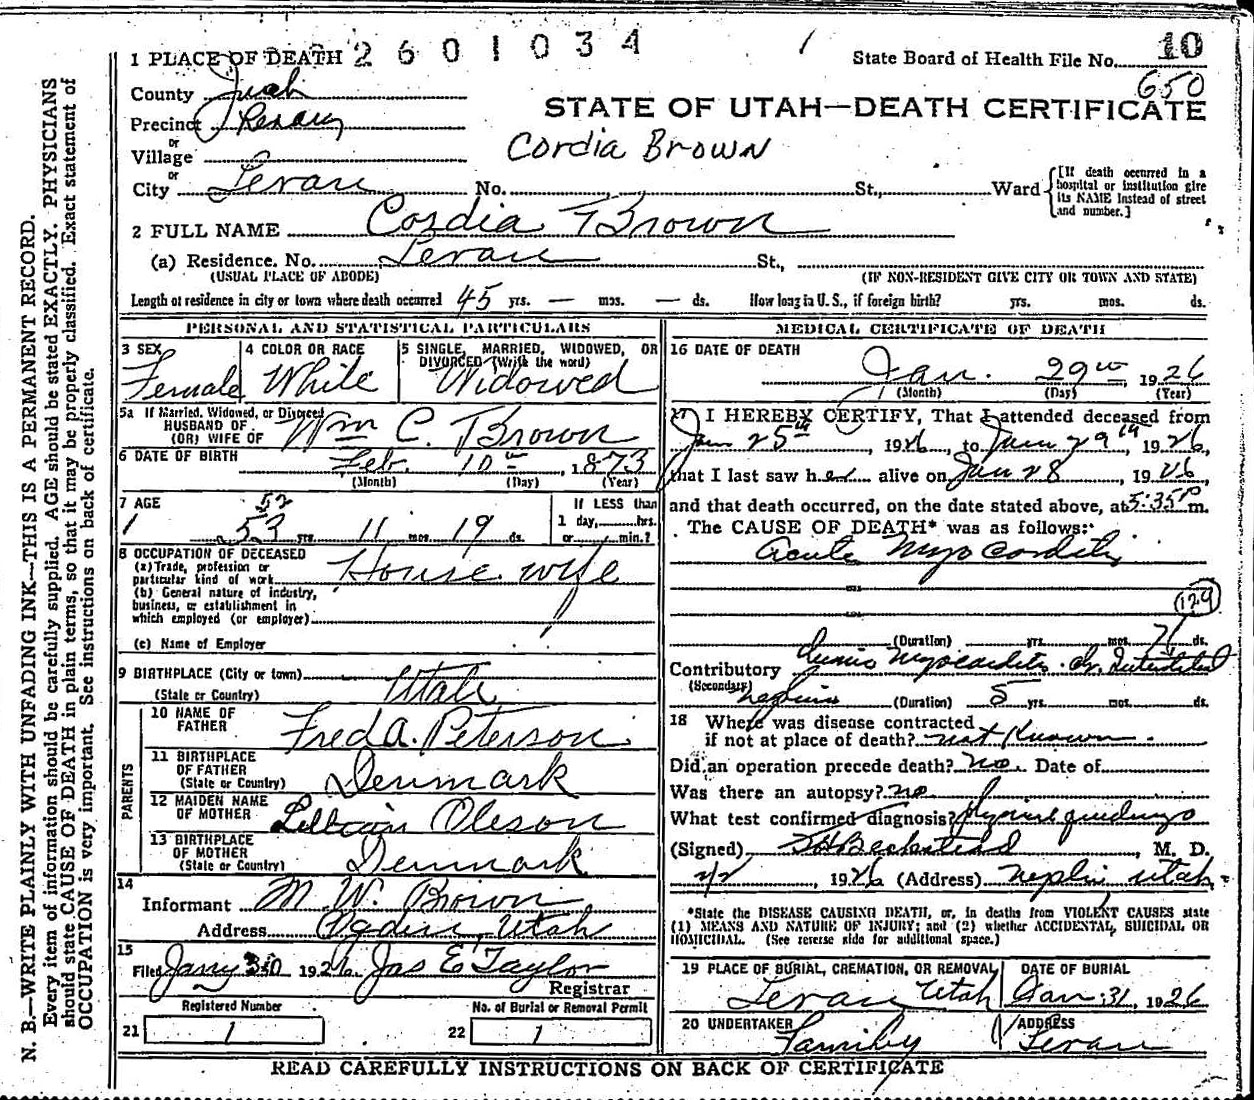 N. B.—WRITE PLAINLY WITH UNFADING INK—THIS IS A PERMANENT RECORD.
Every item of information should be carefully supplied. AGE should be stated EXACTLY. PHYSICIANS
should state CAUSE OF DEATH in plain terms, so that it may be properly classified. Exact statement of
OCCUPATION is very important. See instructions on back of certificate.
1 PLACE OF DEATH 2601034
State Board of Health File No. 10
650
County Juab
STATE OF UTAH—DEATH CERTIFICATE
Precinct Levan
or
Village
Cordia Brown
or
City Levan No. St., Ward
[If death occurred in a hospital or institution give its NAME instead of street and number.]
2 FULL NAME Cordia Brown
(a) Residence. No. Levan St.,
(USUAL PLACE OF ABODE) (IF NON-RESIDENT GIVE CITY OR TOWN AND STATE)
Length of residence in city or town where death occurred 45 yrs. — mos. — ds. How long in U. S., if foreign birth? yrs. mos. ds.
PERSONAL AND STATISTICAL PARTICULARS
3 SEX Female
4 COLOR OR RACE White
5 SINGLE, MARRIED, WIDOWED, OR DIVORCED (Write the word) Widowed
5a If Married, Widowed, or Divorced
HUSBAND OF
(OR) WIFE OF Wm C. Brown
6 DATE OF BIRTH Feb. 10th, 1873
(Month) (Day) (Year)
7 AGE 52
53 yrs. 11 mos. 19 ds.
If LESS than
1 day, hrs.
or min.?
8 OCCUPATION OF DECEASED
(a) Trade, profession or
particular kind of work House wife
(b) General nature of industry,
business, or establishment in
which employed (or employer)
(c) Name of Employer
9 BIRTHPLACE (City or town)
(State or Country) Utah
PARENTS
10 NAME OF
FATHER Fred A. Peterson
11 BIRTHPLACE
OF FATHER
(State or Country) Denmark
12 MAIDEN NAME
OF MOTHER Oleson
13 BIRTHPLACE
OF MOTHER
(State or Country) Denmark
14
Informant M. W. Brown
Address Ogden, Utah
15
Filed Jany 30 1926 Jas E Taylor
Registrar
Registered Number
21 1
No. of Burial or Removal Permit
22 1
MEDICAL CERTIFICATE OF DEATH
16 DATE OF DEATH
Jan. 29th, 1926
(Month) (Day) (Year)
17 I HEREBY CERTIFY, That I attended deceased from
Jan 25th 1926, to Jan 29th, 1926,
that I last saw her alive on Jan 28, 1926
and that death occurred, on the date stated above, at 5:35 P m.
The CAUSE OF DEATH* was as follows:
Acute Myocarditis
129
(Duration) yrs. mos. 7 ds.
Contributory Myocarditis
(Secondary) (Duration) 5 yrs. mos. ds.
18 Where was disease contracted
if not at place of death? not Known.
Did an operation precede death? no. Date of
Was there an autopsy? no
What test confirmed diagnosis?
(Signed) Beckstead, M. D.
2/2, 1926 (Address) Nephi, Utah
*State the DISEASE CAUSING DEATH, or, in deaths from VIOLENT CAUSES state
(1) MEANS AND NATURE OF INJURY; and (2) whether ACCIDENTAL, SUICIDAL OR
HOMICIDAL. (See reverse side for additional space.)
19 PLACE OF BURIAL, CREMATION, OR REMOVAL
Levan Utah
DATE OF BURIAL
Jan. 31, 1926
20 UNDERTAKER
Family
ADDRESS
Levan
READ CAREFULLY INSTRUCTIONS ON BACK OF CERTIFICATE